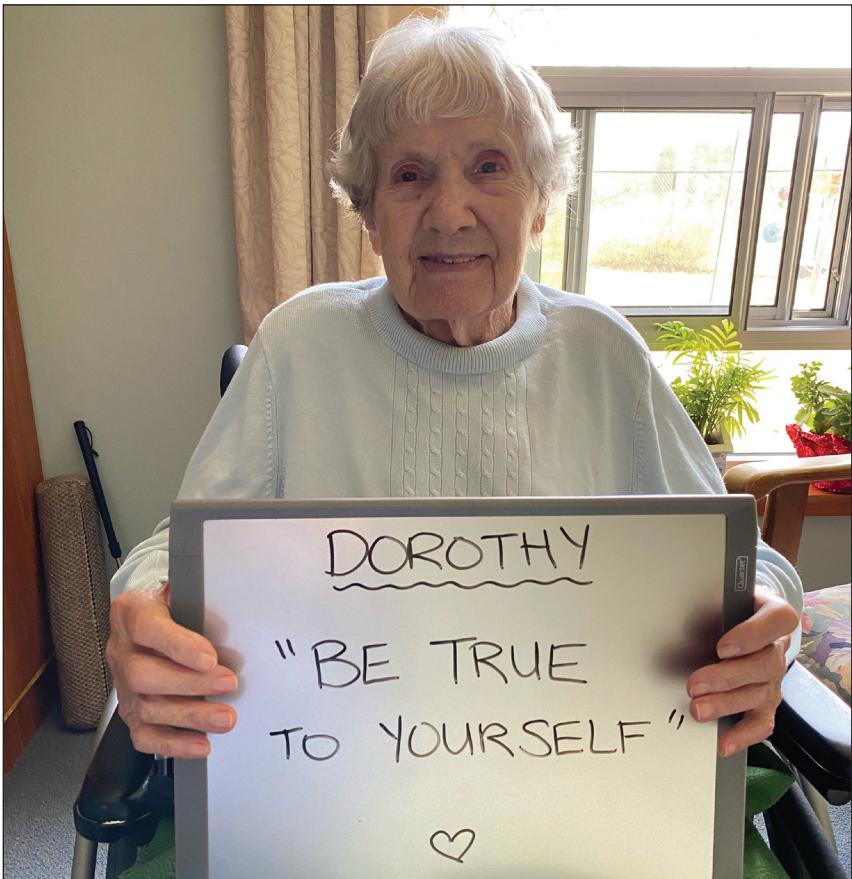 DOROTHY
"BE TRUE
TO YOURSELF"
Quartet